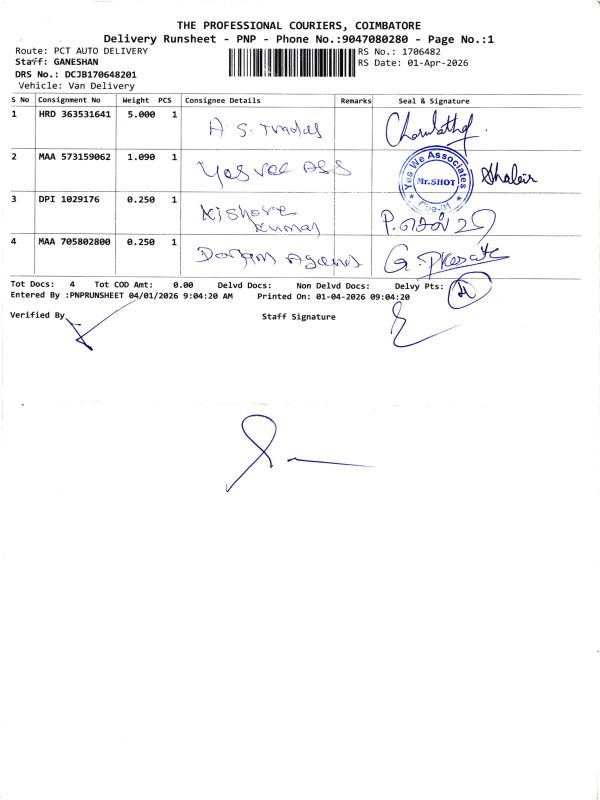 THE PROFESSIONAL COURIERS, COIMBATORE
Delivery Runsheet - PNP - Phone No.:9047080280 - Page No.:1
Route: PCT AUTO DELIVERY
RS No.: 1706482
Staff: GANESHAN
RS Date: 01-Apr-2026
DRS No.: DCJB170648201
Vehicle: Van Delivery
S No Consignment No Weight PCS Consignee Details Remarks Seal & Signature
1 HRD 363531641 5.000 1 A. S. Trades
2 MAA 573159062 1.090 1 Yes vee ASS
Yes We Associates
Mr.SHOT
Cbe-01
3 DPI 1029176 0.250 1 Kishore
Kumar
4 MAA 705802800 0.250 1
Tot Docs: 4 Tot COD Amt: 0.00 Delvd Docs: Non Delvd Docs: Delvy Pts: 4
Entered By :PNPRUNSHEET 04/01/2026 9:04:20 AM Printed On: 01-04-2026 09:04:20
Verified By
Staff Signature